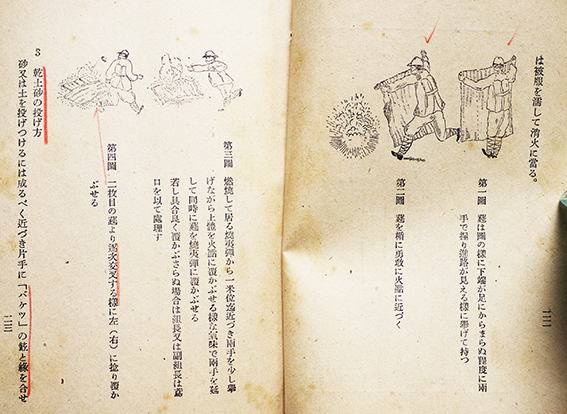 は被服を濡して消火に當る。
第一圖　蓆は圖の樣に下端が足にからまらぬ程度に兩
手で握り進路が見える樣に擧げて持つ
第二圖　蓆を楯に勇敢に火點に近づく
二二
第三圖　燃燒して居る燒夷彈から一米位迄近づき兩手を少し擧
げながら上體を火點に覆かぶせる樣な氣味で兩手を延
して同時に蓆を燒夷彈に覆かぶせる
若し具合良く覆かぶさらぬ場合は組長又は副組長は鳶
口を以て處理す
第四圖　二枚目の蓆より逐次交叉する樣に左（右）に捻り覆か
ぶせる
3　乾土砂の投げ方
砂又は土を投げつけるには成るべく近づき片手に「バケツ」の鉉と緣を合せ
二三